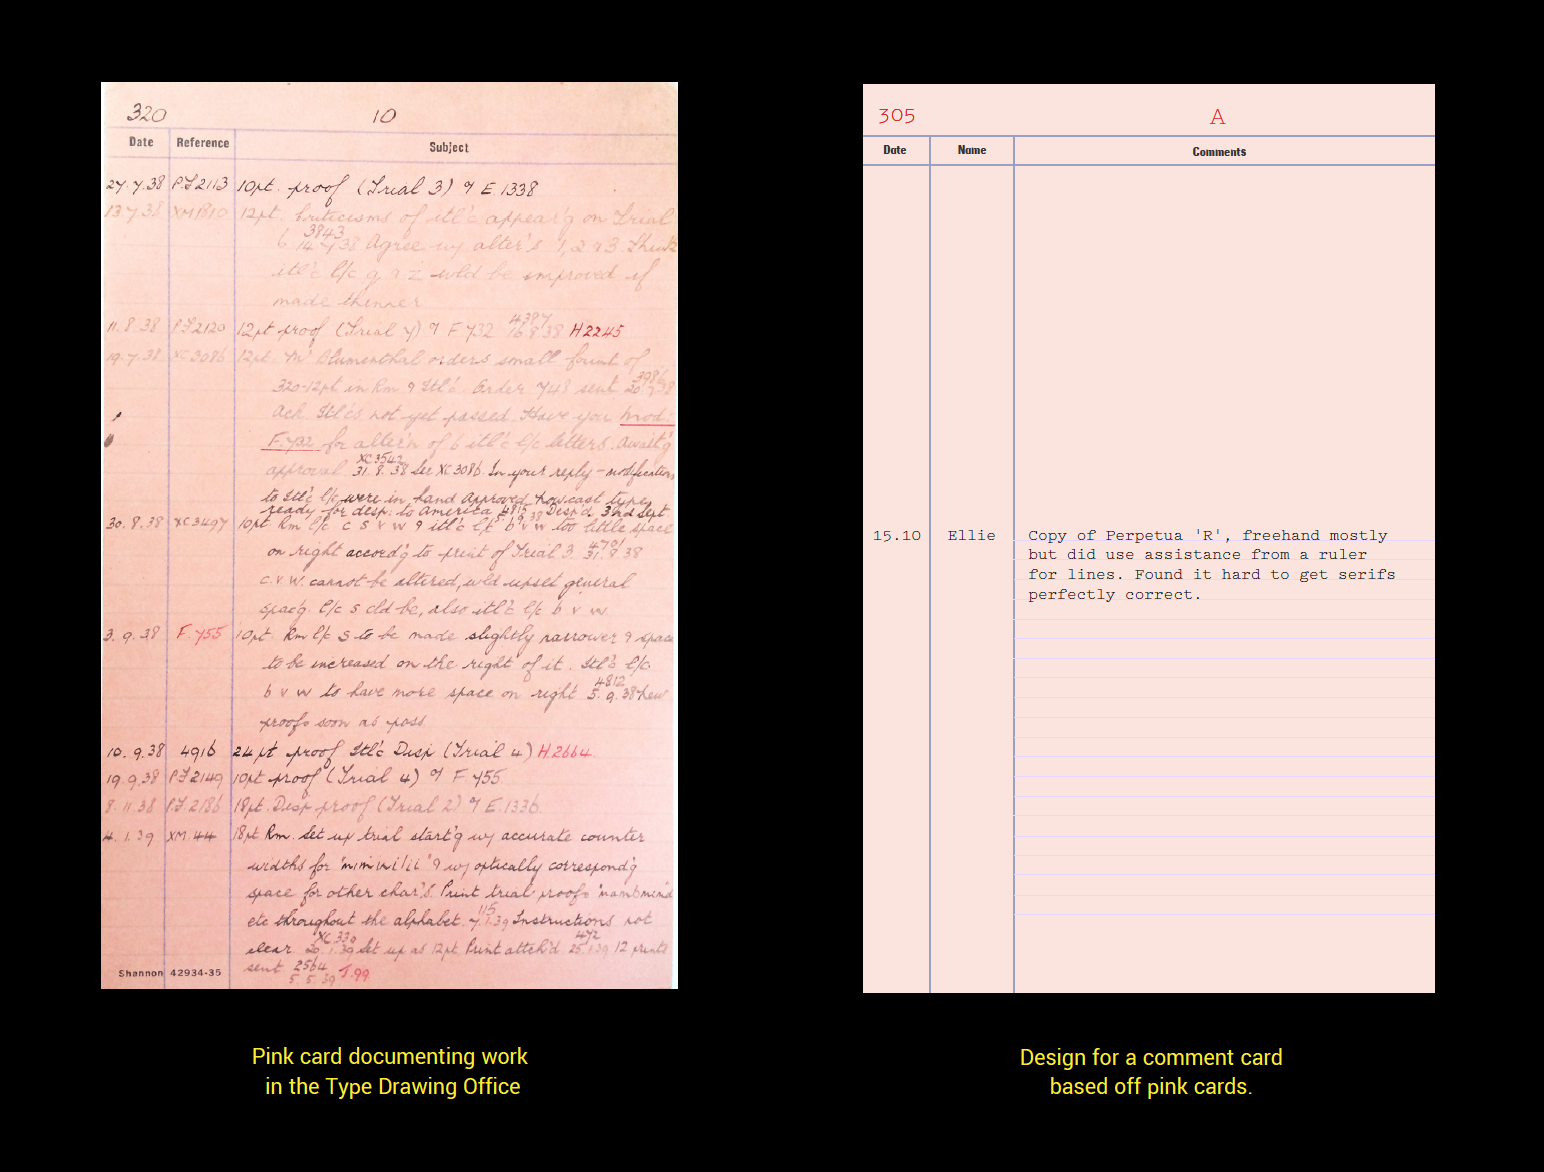 320 10
Date Reference Subject
27.7.38 P.T 2113 10pt. proof (Trial 3) 9 E.1338
13.7.38 XM1810 12pt. Criticisms of itl'c appear'g on Trial
3843
6 14.7.38 Agree w/ alter's 1, 2 9 3. Think
itl'c l/c g 9 z wld be improved if
made thinner
11.8.38 P.T 2120 12pt proof (Trial 7) 9 F 732 16.8.38 H2245
4387
19.7.38 XC3086 12pt. Mr Blumenthal orders small fount of
320-12pt in Rm 9 Itl'c. Order 748 sent 20.7.38
3986
Ack. Itl'cs not yet passed. Have you mod:
F.732 for alter'n of 6 itl'c l/c letters. Await'g
XC3542
approval 31.8.38 See XC3086. In your reply - modification
to Itl'c l/c were in hand Approved, now cast type,
ready for desp: to America 4815 Desp'd 3rd Sept.
30.8.38 XC3497 10pt. Rm l/c c s v w 9 itl'c l/c b v w too little space
on right accord'g to print of Trial 3. 31.8.38
4701
c.v.w. cannot be altered, wld upset general
spac'g. l/c s cld be, also itl'c l/c b v w.
3.9.38 F.755 10pt. Rm l/c s to be made slightly narrower 9 space
to be increased on the right of it. Itl'c l/c
4812
b v w to have more space on right 5.9.38 New
proofs soon as poss.
10.9.38 4916 24pt proof Itl'c Disp (Trial 4) H.2664
19.9.38 P.T 2149 10pt proof (Trial 4) 9 F.755
8.11.38 P.T.2186 18pt. Disp proof (Trial 2) 9 E.1336.
4.1.39 XM.44 18pt Rm. Set up trial start'g w/ accurate counter
widths for 9 w/ optically correspond'g
space for other char's. Print trial proofs
115
etc throughout the alphabet. 7.1.39 Instructions not
XC330 472
clear 20.1.39 Set up as 12pt Print attch'd 25.1.39 12 prints
sent 2564 J.99
5.5.39
Shannon 42934-35
Pink card documenting work
in the Type Drawing Office
305 A
Date Name Comments
15.10 Ellie Copy of Perpetua 'R', freehand mostly
but did use assistance from a ruler
for lines. Found it hard to get serifs
perfectly correct.
Design for a comment card
based off pink cards.